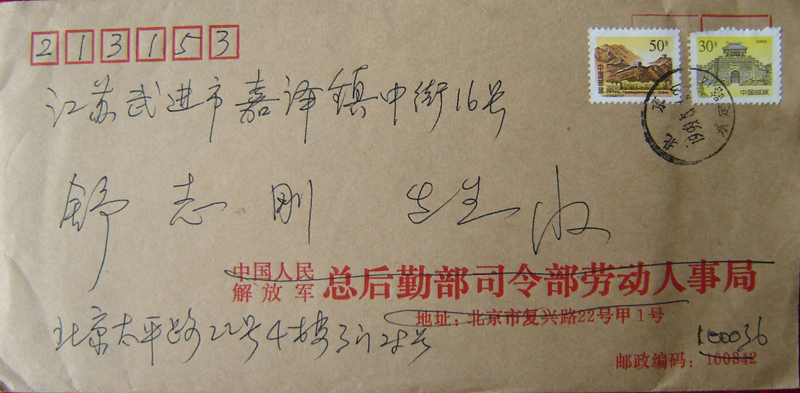 213153
50分
中国邮政
30分
中国邮政
北京
江苏武进市嘉泽镇中街16号
舒志刚 先生 收
中国人民
解放军
总后勤部司令部劳动人事局
地址：北京市复兴路22号甲1号
北京太平路22号4楼3门28号
100036
邮政编码：100842